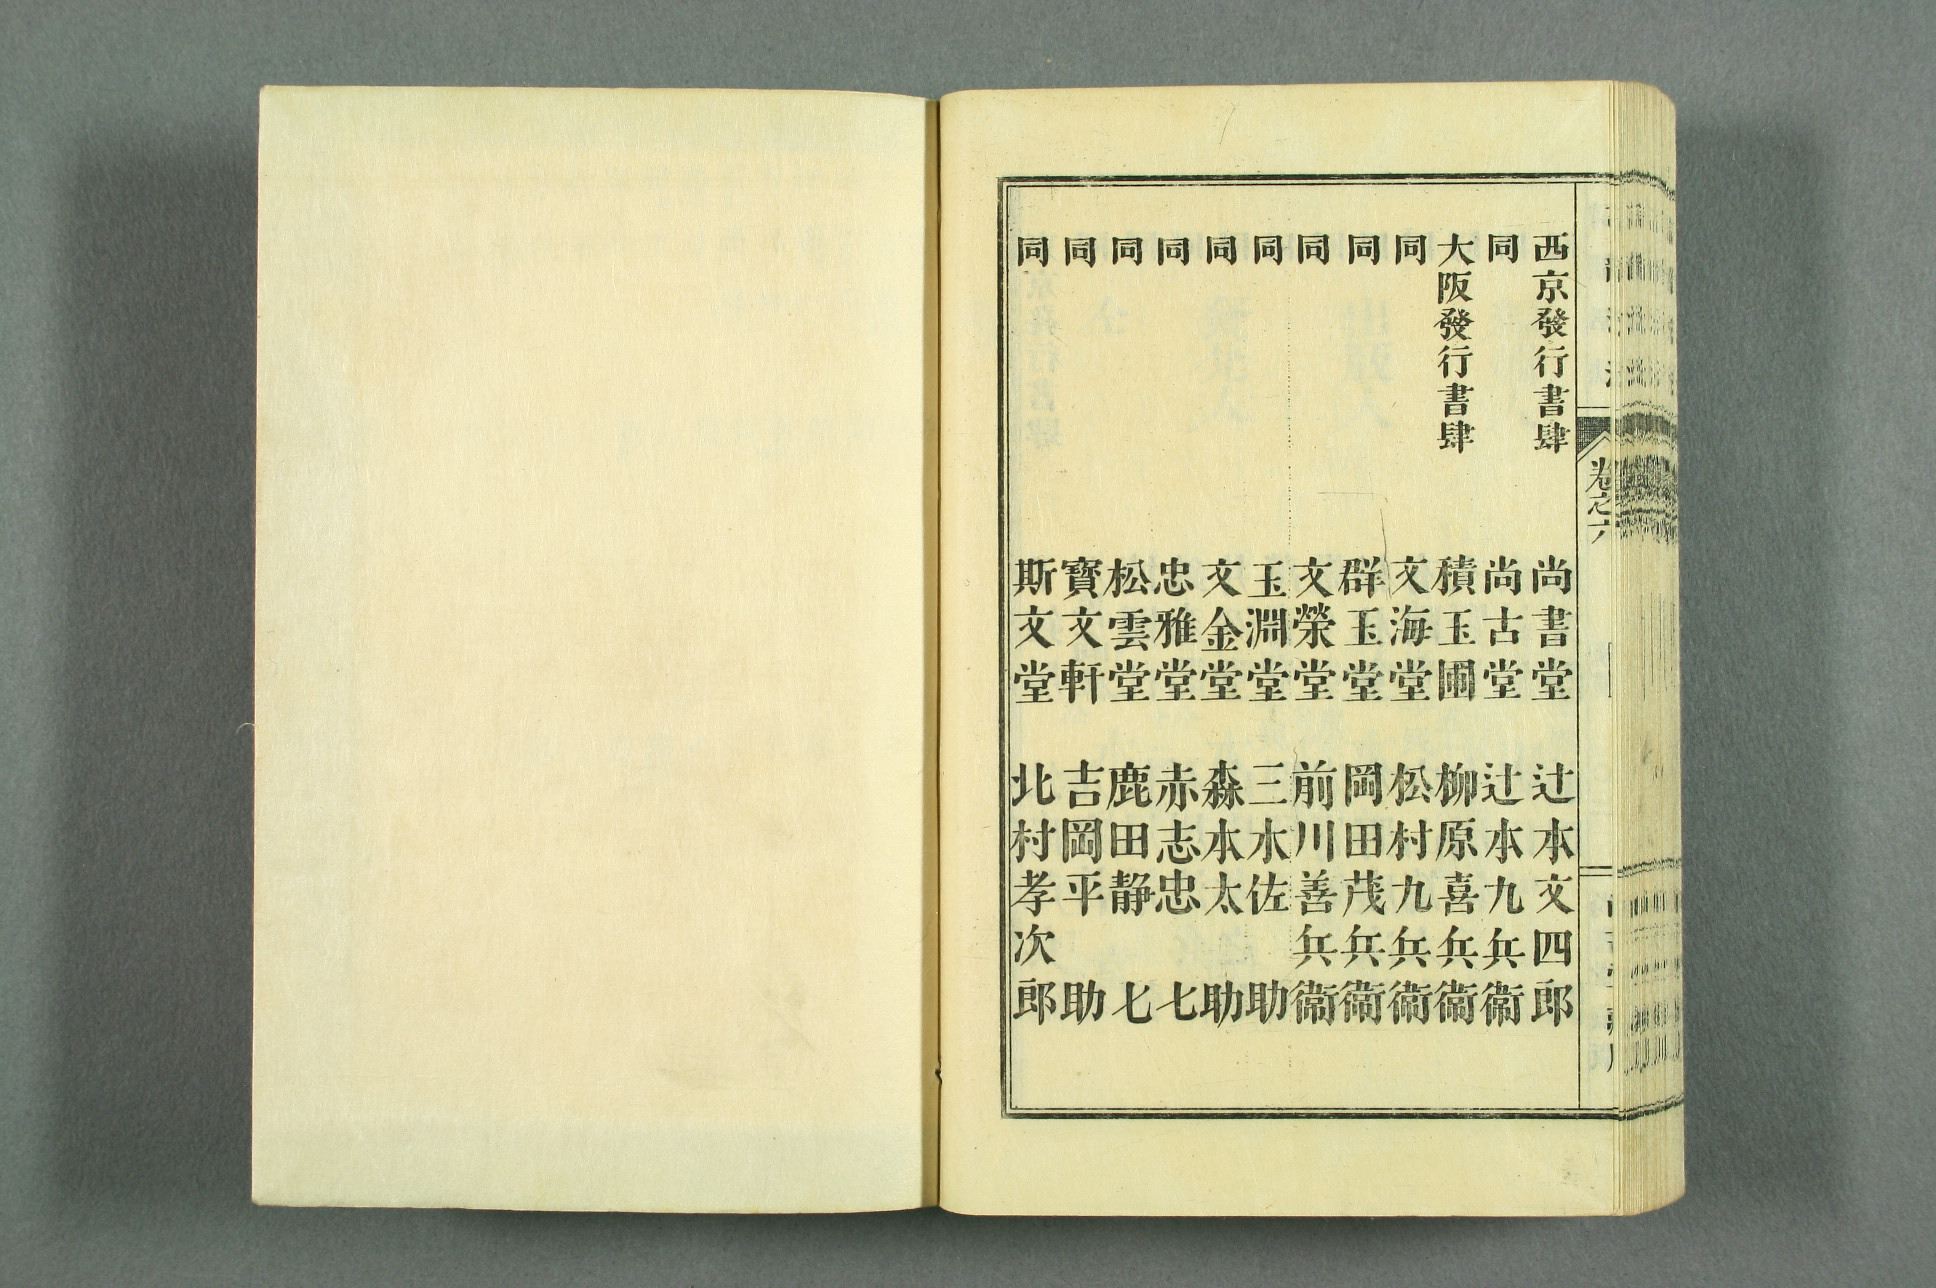 西京發行書肆 尚書堂 辻本文四郎
同 尚古堂 辻本九兵衞
大阪發行書肆 積玉圃 柳原喜兵衞
同 文海堂 松村九兵衞
同 群玉堂 岡田茂兵衞
同 文榮堂 前川善兵衞
同 玉淵堂 三木佐助
同 文金堂 森本太助
同 忠雅堂 赤志忠七
同 松雲堂 鹿田静七
同 寶文軒 吉岡平助
同 斯文堂 北村孝次郎
卷之六